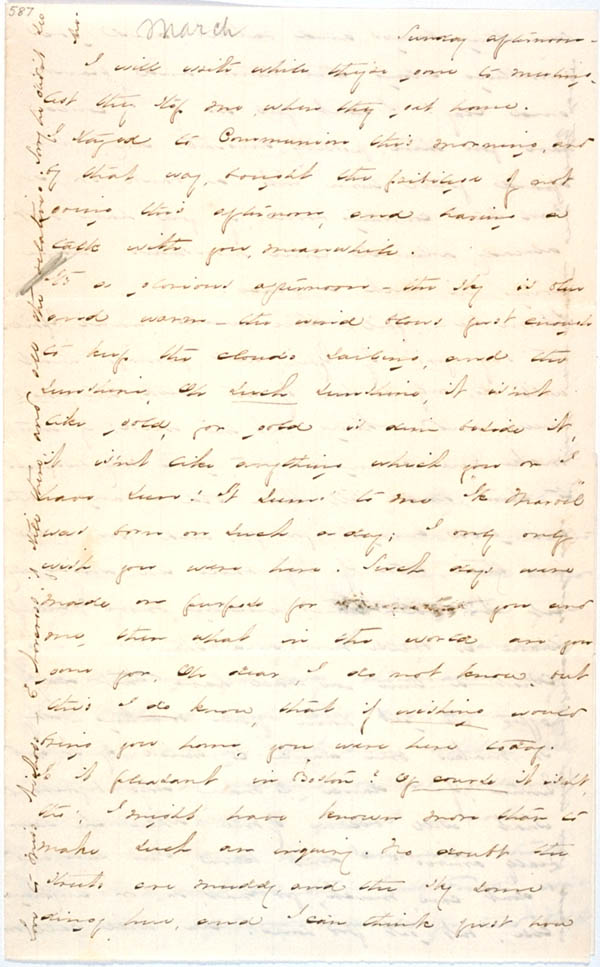 587
March
Sunday afternoon -
I will write while they've gone to meeting,
lest they stop me, when they get home.
I stayed to Communion this morning, and
by that way, bought the privilege of not
going this afternoon, and having a
talk with you, meanwhile.
It's a glorious afternoon - the sky is blue
and warm - the wind blows just enough
to keep the clouds sailing, and the
sunshine, Oh such sunshine, it isn't
like gold, for gold is dim beside it,
it isn't like anything which you or I
have seen! It seems to me "Ik Marvel"
was born on such a day; I only
wish you were here. Such days were
made on purpose for you and
me, then what in the world are you
gone for, Oh dear, I do not know, but
this I do know, that if wishing would
bring you home, you were here today.
Is it pleasant in Boston? Of course it isn't,
tho', I might have known more than to
make such an inquiry. No doubt the
streets are muddy, and the sky some
dingy hue, and I can think just how
love to Miss Nichols - and all the relations.